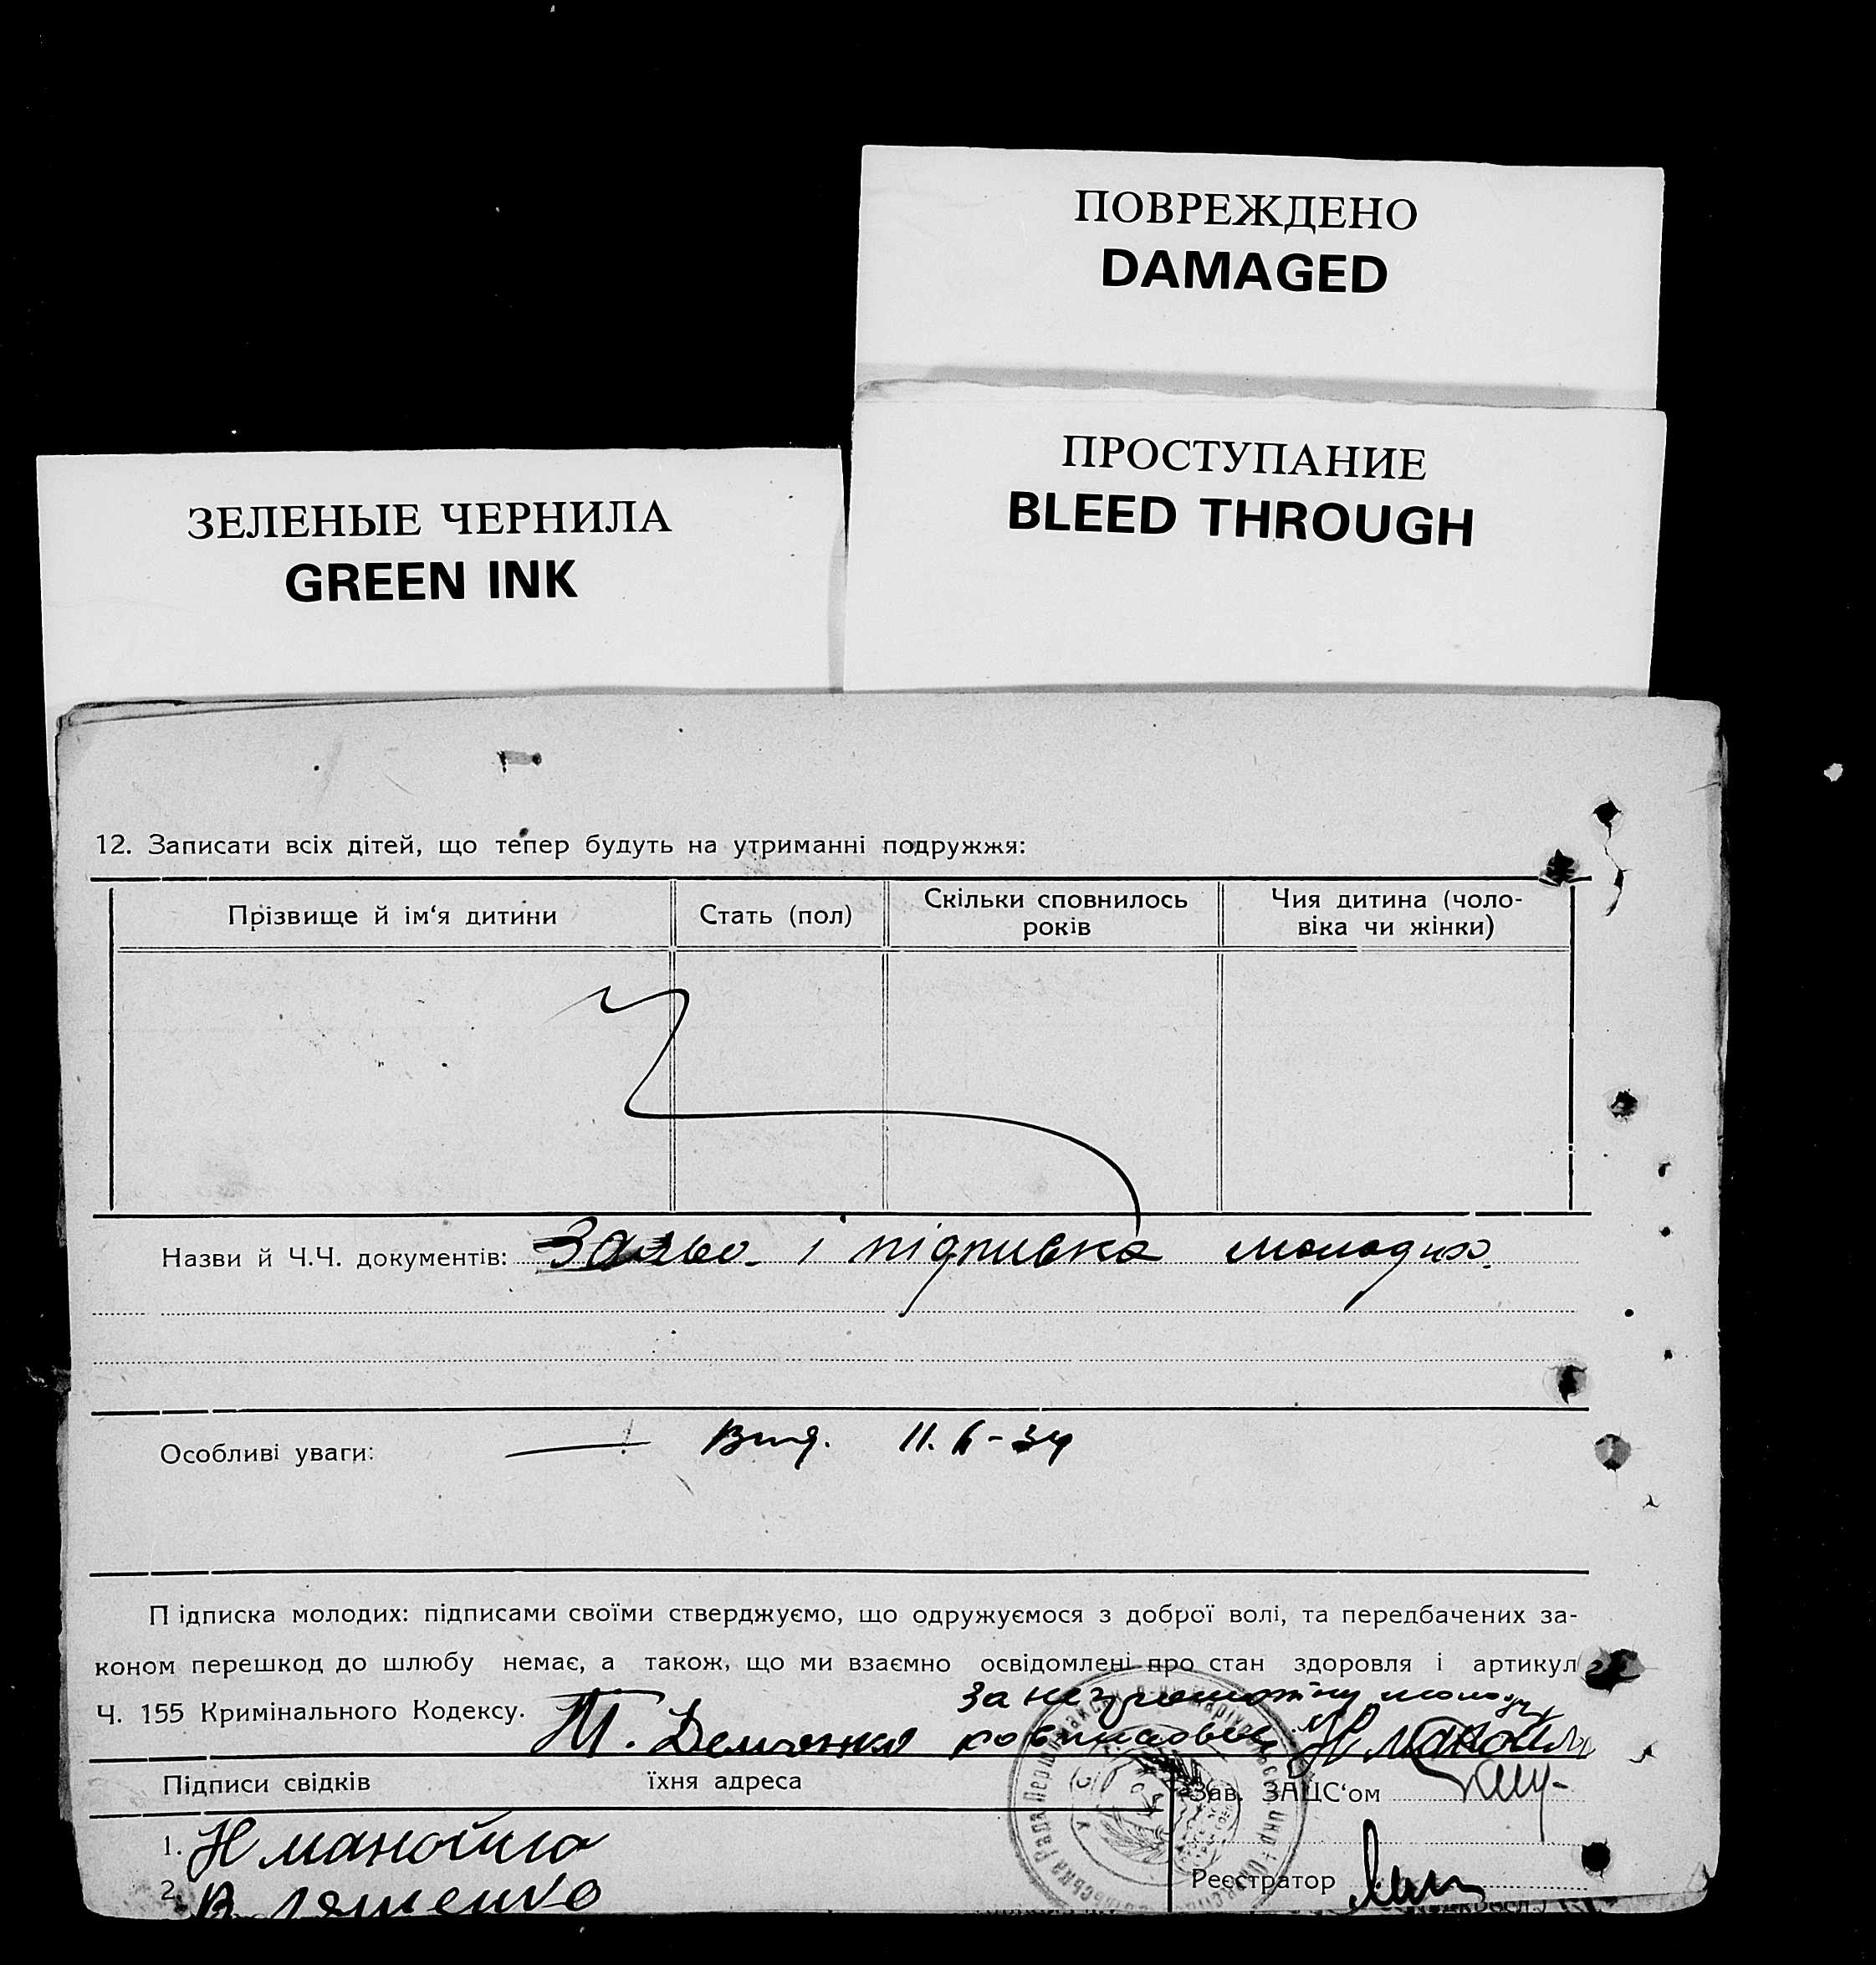 ПОВРЕЖДЕНО
DAMAGED
ПРОСТУПАНИЕ
BLEED THROUGH
ЗЕЛЕНЫЕ ЧЕРНИЛА
GREEN INK
12. Записати всіх дітей, що тепер будуть на утриманні подружжя:
Прізвище й ім‘я дитини
Стать (пол)
Скільки сповнилось
років
Чия дитина (чоло-
віка чи жінки)
Назви й Ч.Ч. документів: Заява і підписка молодих.
Особливі уваги: — 11. 6-34
Підписка молодих: підписами своїми стверджуємо, що одружуємося з доброї волі, та передбачених за-
коном перешкод до шлюбу немає, а також, що ми взаємно освідомлені про стан здоровля і артикул
Ч. 155 Кримінального Кодексу.
за неграмотну молоду
Т. Демченко росписовся Н Манойло
Підписи свідків їхня адреса
Зав. ЗАЦС‘ом
1. Н Манойло
Реєстратор
2. В. Ляшенко